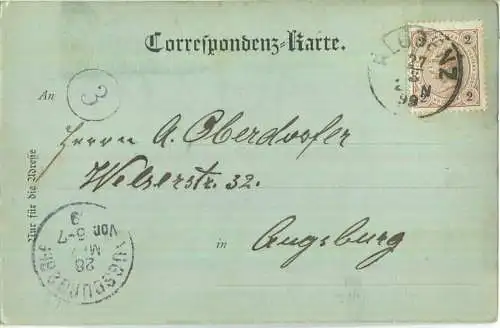 Correspondenz-Karte.
BLUDENZ
27
N
99
2 2
An
3
Herrn A. Oberdorfer
Welserstr. 32.
in
Augsburg
Nur für die Adresse
AUGSBURG
28
Vor. 6-7